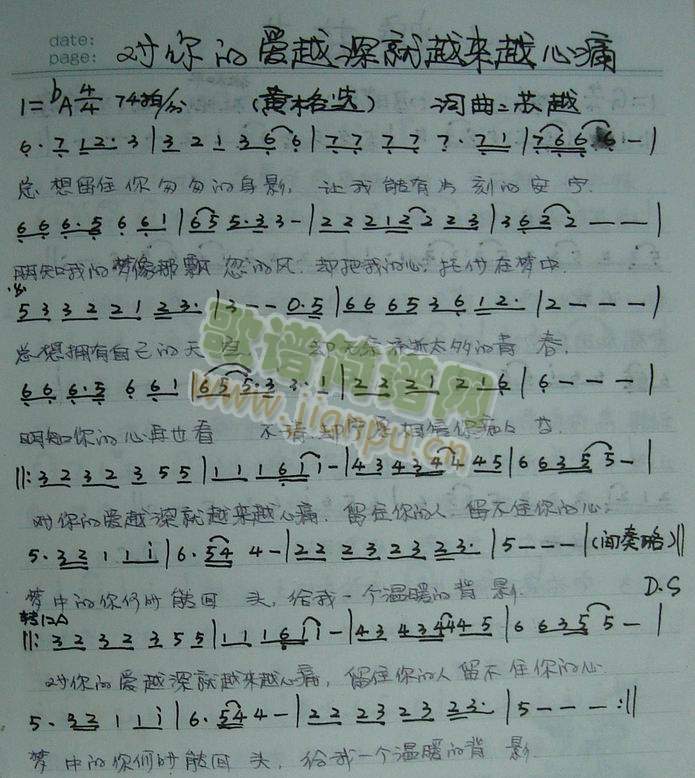 date:
page: 对你的爱越深就越来越心痛
1=bA 4/4 74拍/分 (黄格选) 词曲:苏越
6·7 12·3|3 2 1 3 6 6|77 77 7·71|7666—|
总想留住你匆匆的身影, 让我能有片刻的安宁.
66 6·5 6 61|65 5·3 3—|22 212 2 23|3 62 2———|
明知我的梦像那飘忽的风, 却把我的心托付在梦中.
53 32 21 23·|3——0·5|66 65 36 12·|2———|
总想拥有自己的天空
66 6·5 6 61|65 5·3 3·1|22 21 216|6———|
明知你的心再也看不清,却宁愿相信你痛人
||:32 32 3 55|1 1 1 6 1 1—|43 434 4 45|6 6 3 5 5—|
对你的爱越深就越来越心痛, 留住你的人 留不住你的心.
5·32 1 1i|6·54 4—|22 23 23 23·|5———|(间奏略)||
梦中的你何时能回头, 给我一个温暖的背影. D.S
转1=A
||:32 32 3 55|1 1 1 6 1 1—|43 434 4 45|6 6 3 5 5—|
对你的爱越深就越来越心痛, 留住你的人 留不住你的心
5·32 1 1i|6·54 4—|22 23 23 23·|5———:||
梦中的你何时能回头, 给我一个温暖的背影
歌谱简谱网
www.jianpu.cn